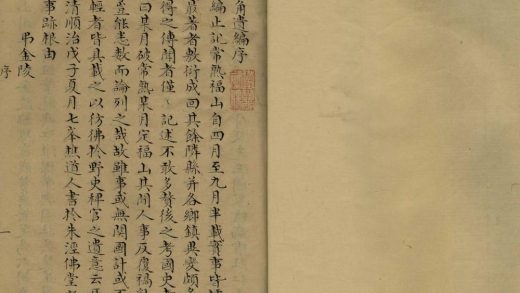 角遺編序
編止記常熟福山自四月至九月半載實事皆
最著者敷衍成回其餘隣縣并各鄉鎮異變頗多
得之傳聞者僅記述不敢多贅後之考國史
曰某月破常熟某月定福山其間人事反覆禍亂
豈能悉數而論列之哉故雖事或無關國計或不
輕者皆具載之以彷彿於野史稗官之遺意云耳
清順治戊子夏月七峯樵道人書於朱涇佛堂
事跡根由
弔金陵
序
一